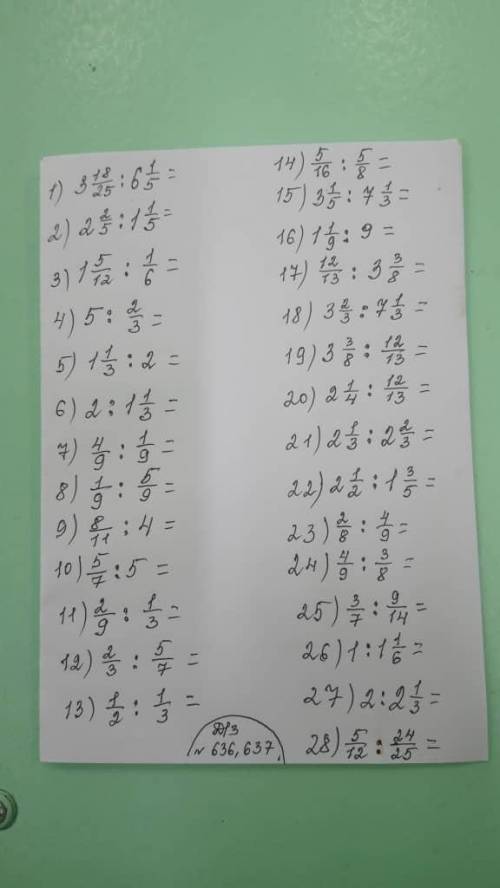 1) 3 18/25 : 6 1/5 =
2) 2 2/5 : 1 1/5 =
3) 1 5/12 : 1/6 =
4) 5 : 2/3 =
5) 1 1/3 : 2 =
6) 2 : 1 1/3 =
7) 4/9 : 1/9 =
8) 1/9 : 5/9 =
9) 8/11 : 4 =
10) 5/7 : 5 =
11) 2/9 : 1/3 =
12) 2/3 : 5/7 =
13) 1/2 : 1/3 =
14) 5/16 : 5/8 =
15) 3 1/5 : 7 1/3 =
16) 1 1/9 : 9 =
17) 12/13 : 3 3/8 =
18) 3 2/3 : 7 1/3 =
19) 3 3/8 : 12/13 =
20) 2 1/4 : 12/13 =
21) 2 1/3 : 2 2/3 =
22) 2 1/2 : 1 3/5 =
23) 2/8 : 4/9 =
24) 4/9 : 3/8 =
25) 3/7 : 9/14 =
26) 1 : 1 1/6 =
27) 2 : 2 1/3 =
28) 5/12 : 24/25 =
Д/З
№ 636, 637.